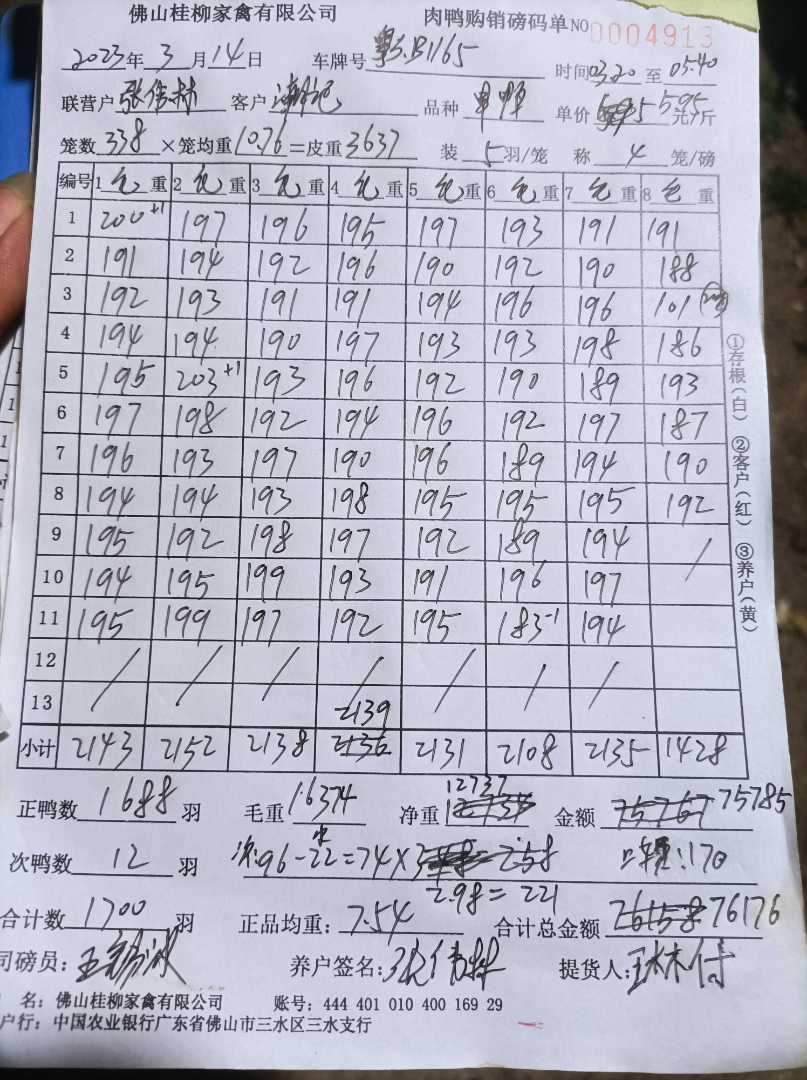 佛山桂柳家禽有限公司 肉鸭购销磅码单 NO 0004913
2023年3月14日 车牌号 粤S.B1165 时间03.20至05.40
联营户 张伟林 客户 品种 单价 5.95 元/斤
笼数 338 ×笼均重 10.76 =皮重 3637 装 5 羽/笼 称 4 笼/磅
编号 1 毛 重 2 毛 重 3 毛 重 4 毛 重 5 毛 重 6 毛 重 7 毛 重 8 毛 重
1 200+1 197 196 195 197 193 191 191
2 191 194 192 196 190 192 190 188
3 192 193 191 191 194 196 196 101
4 194 194 190 197 193 193 198 186
5 195 203+1 193 196 192 190 189 193
6 197 198 192 194 196 192 197 187
7 196 193 197 190 196 189 194 190
8 194 194 193 198 195 195 195 192
9 195 192 198 197 192 189 194 /
10 194 195 199 193 191 196 197
11 195 199 197 192 195 183-1 194
12 / / / / / / /
13 2139
小计 2143 2152 2138 2136 2131 2108 2135 1428
正鸭数 1688 羽 毛重 1.6374 净重 12737 金额 75767 75785
次鸭数 12 羽 次:96-22=74× 2.98=221 :170
合计数 1700 羽 正品均重: 7.54 合计总金额 76158 76176
司磅员: 养户签名: 张伟林 提货人:
名: 佛山桂柳家禽有限公司 账号: 444 401 010 400 169 29
户行: 中国农业银行广东省佛山市三水区三水支行
①存根(白) ②客户(红) ③养户(黄)